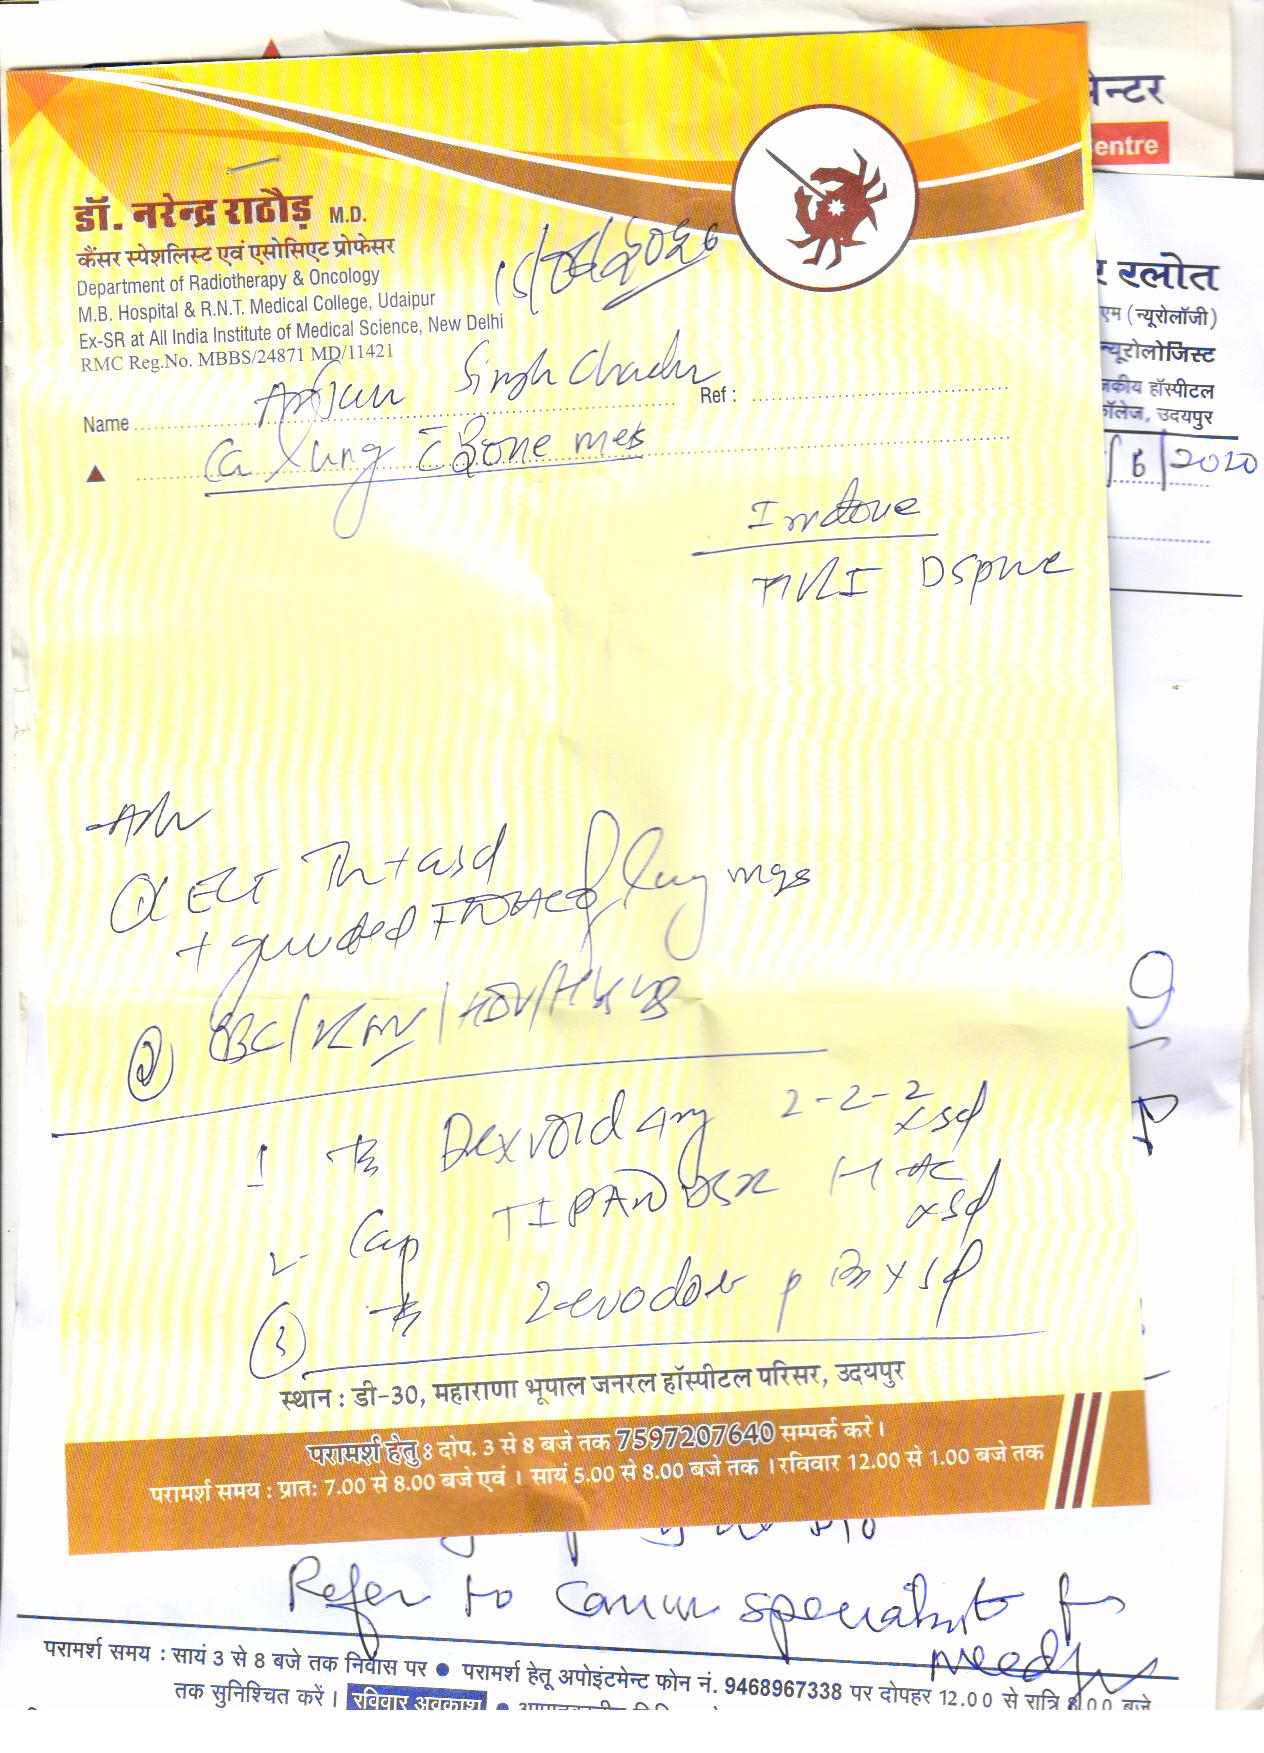 ेन्टर
entre
डॉ. नरेन्द्र राठौड़ M.D.
कैंसर स्पेशलिस्ट एवं एसोसिएट प्रोफेसर
Department of Radiotherapy & Oncology
M.B. Hospital & R.N.T. Medical College, Udaipur
Ex-SR at All India Institute of Medical Science, New Delhi
RMC Reg.No. MBBS/24871 MD/11421
र रलोत
एम (न्यूरोलॉजी)
न्यूरोलोजिस्ट
जकीय हॉस्पीटल
कॉलेज, उदयपुर
Name Singh Ref :
Ca lung c Bone mets
2020
MRI Dspine
Adv
① CECT Th + abd
+ guided FNAC of lung mass
② CBC/
1 Tb Dexvord 4mg 2-2-2 x 5d
2- Cap TIPAN DSR x 5d
③ Tb Zerodol x 5d
स्थान : डी-30, महाराणा भूपाल जनरल हॉस्पीटल परिसर, उदयपुर
परामर्श हेतु : दोप. 3 से 8 बजे तक 7597207640 सम्पर्क करे।
परामर्श समय : प्रातः 7.00 से 8.00 बजे एवं । सायं 5.00 से 8.00 बजे तक । रविवार 12.00 से 1.00 बजे तक
Refer to Cancer specialist for
needful
परामर्श समय : सायं 3 से 8 बजे तक निवास पर ● परामर्श हेतू अपोइंटमेन्ट फोन नं. 9468967338 पर दोपहर 12.00 से रात्रि 8.00 बजे
तक सुनिश्चित करें । रविवार अवकाश ●